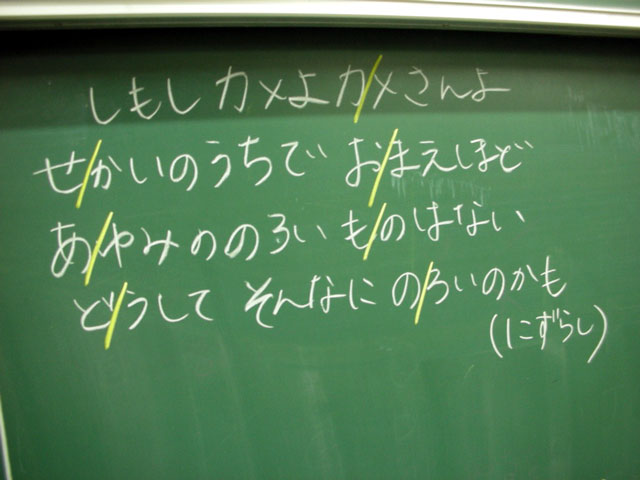 しもし カメよ カメさんよ
せかいのうちで おまえほど
あゆみののろい ものはない
どうして そんなに のろいのかも
(にずらし)